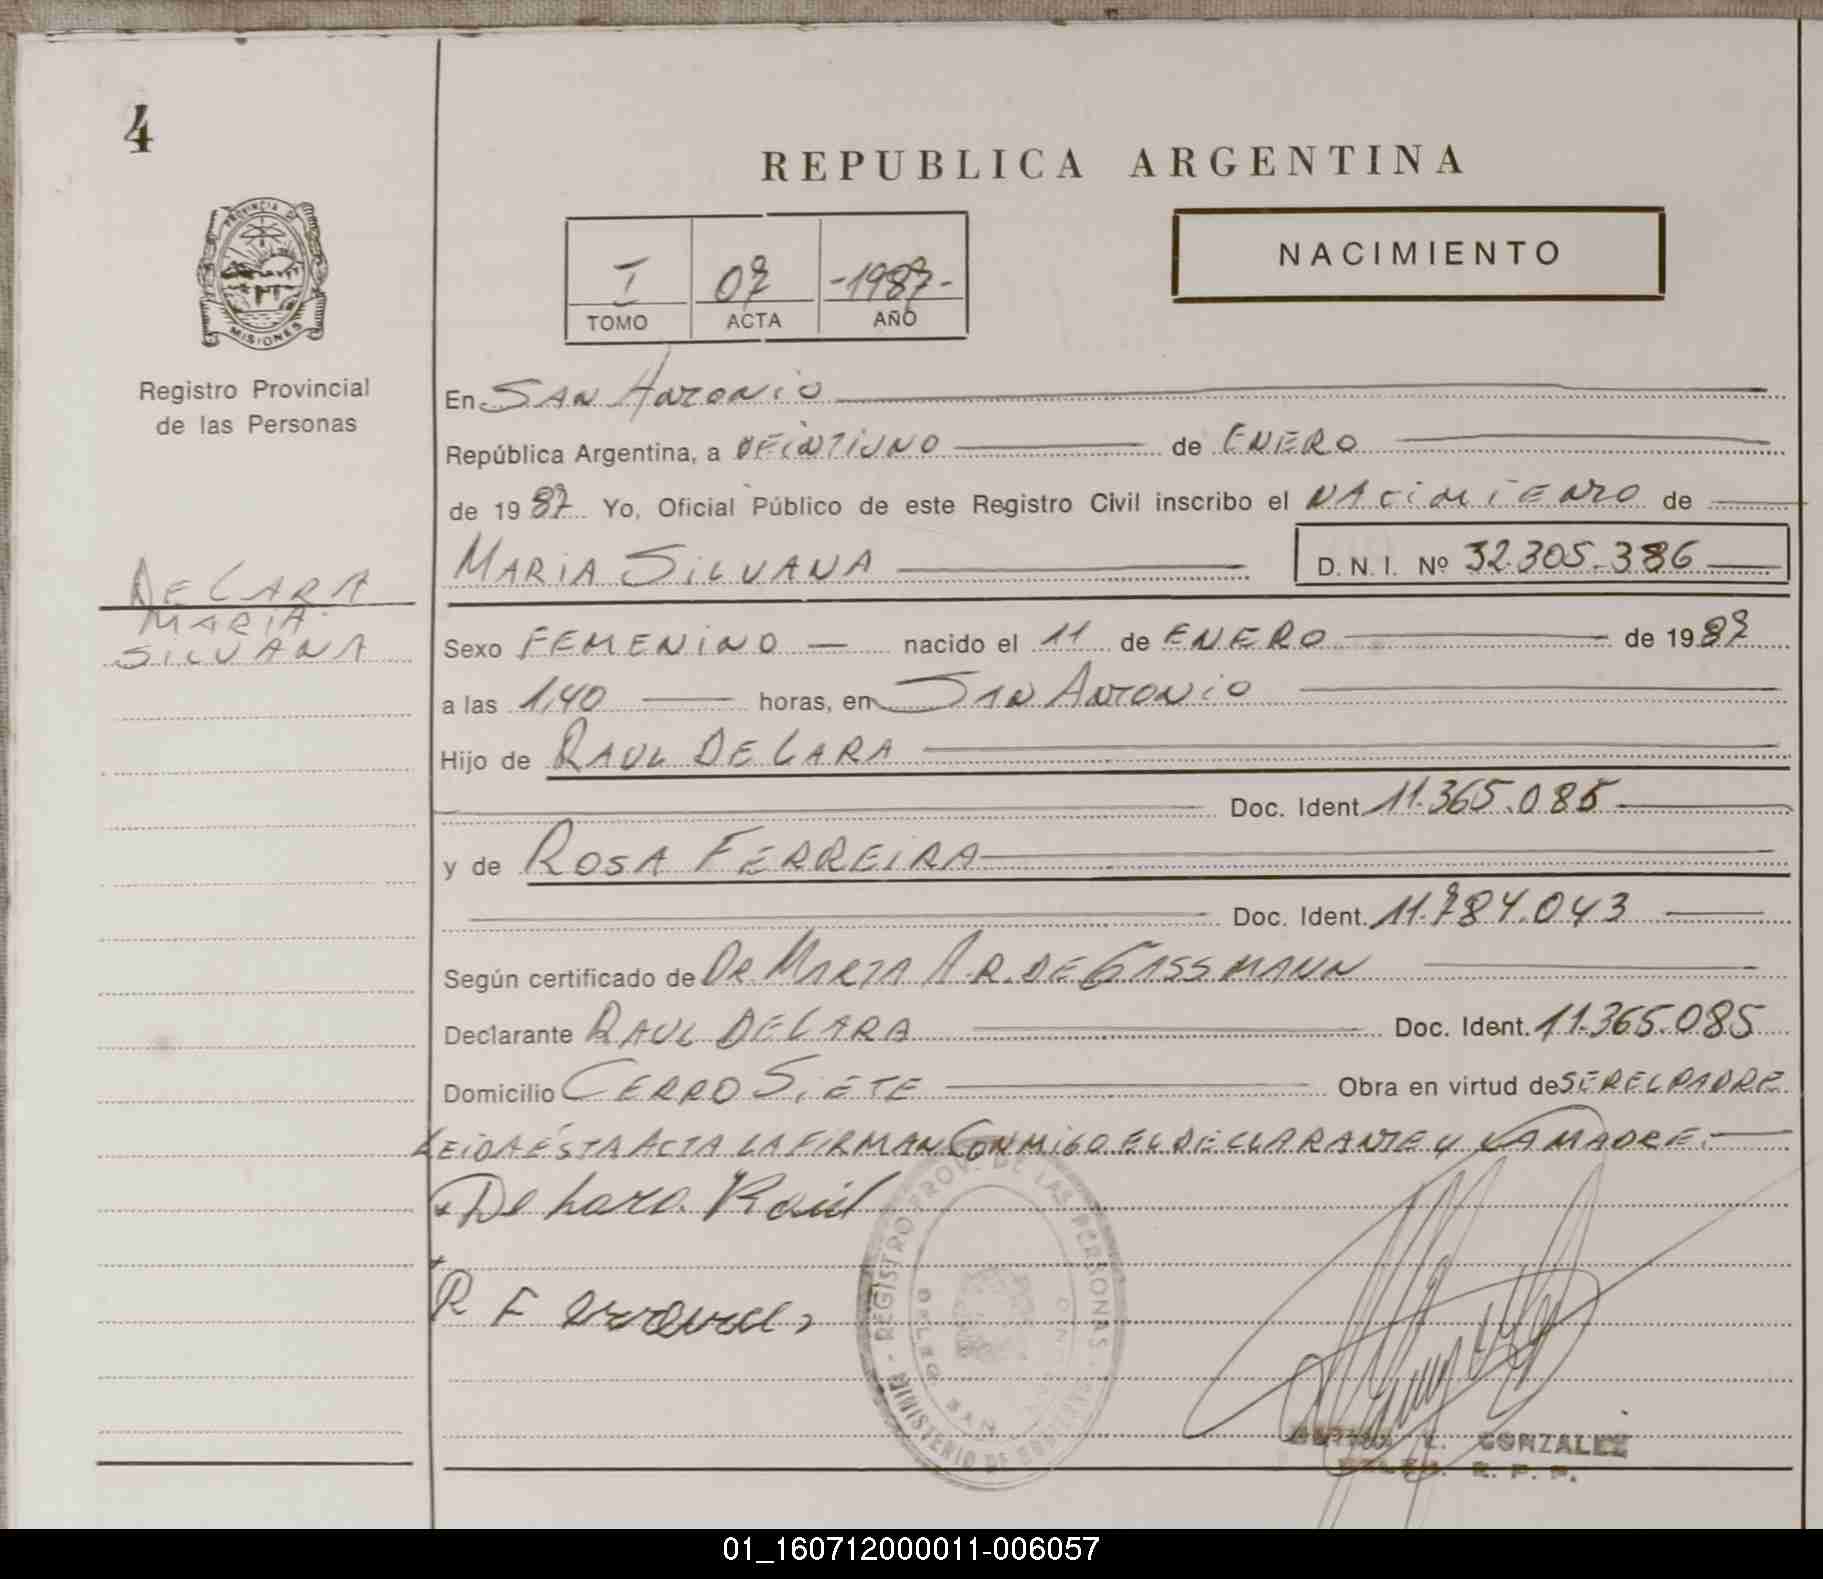 4
REPUBLICA ARGENTINA
PROVINCIA DE
MISIONES
Registro Provincial
de las Personas
I 07 -1987-
TOMO ACTA AÑO
NACIMIENTO
En SAN ANTONIO
República Argentina, a VEINTIUNO de ENERO
de 1987 Yo, Oficial Público de este Registro Civil inscribo el NACIMIENTO de
MARIA SILVANA D. N. I. Nº 32.305.386
DE LARA
MARIA
SILVANA
Sexo FEMENINO nacido el 11 de ENERO de 1987
a las 1,40 horas, en SAN ANTONIO
Hijo de RAUL DE LARA
Doc. Ident. 11.365.085
y de ROSA FERREIRA
Doc. Ident. 11.784.043
Según certificado de DR. MARTA A.R. DE GASSMANN
Declarante RAUL DE LARA Doc. Ident. 11.365.085
Domicilio CERRO SIETE Obra en virtud de SER EL PADRE
LEIDA ÉSTA ACTA LA FIRMAN CONMIGO EL DECLARANTE Y LA MADRE.-
De Lara Raúl
R F
REGISTRO PROV. DE LAS PERSONAS
MINISTERIO DE GOBIERNO
DELEG. SAN
L. GONZALEZ
DELEG. R. P. P.
01_160712000011-006057